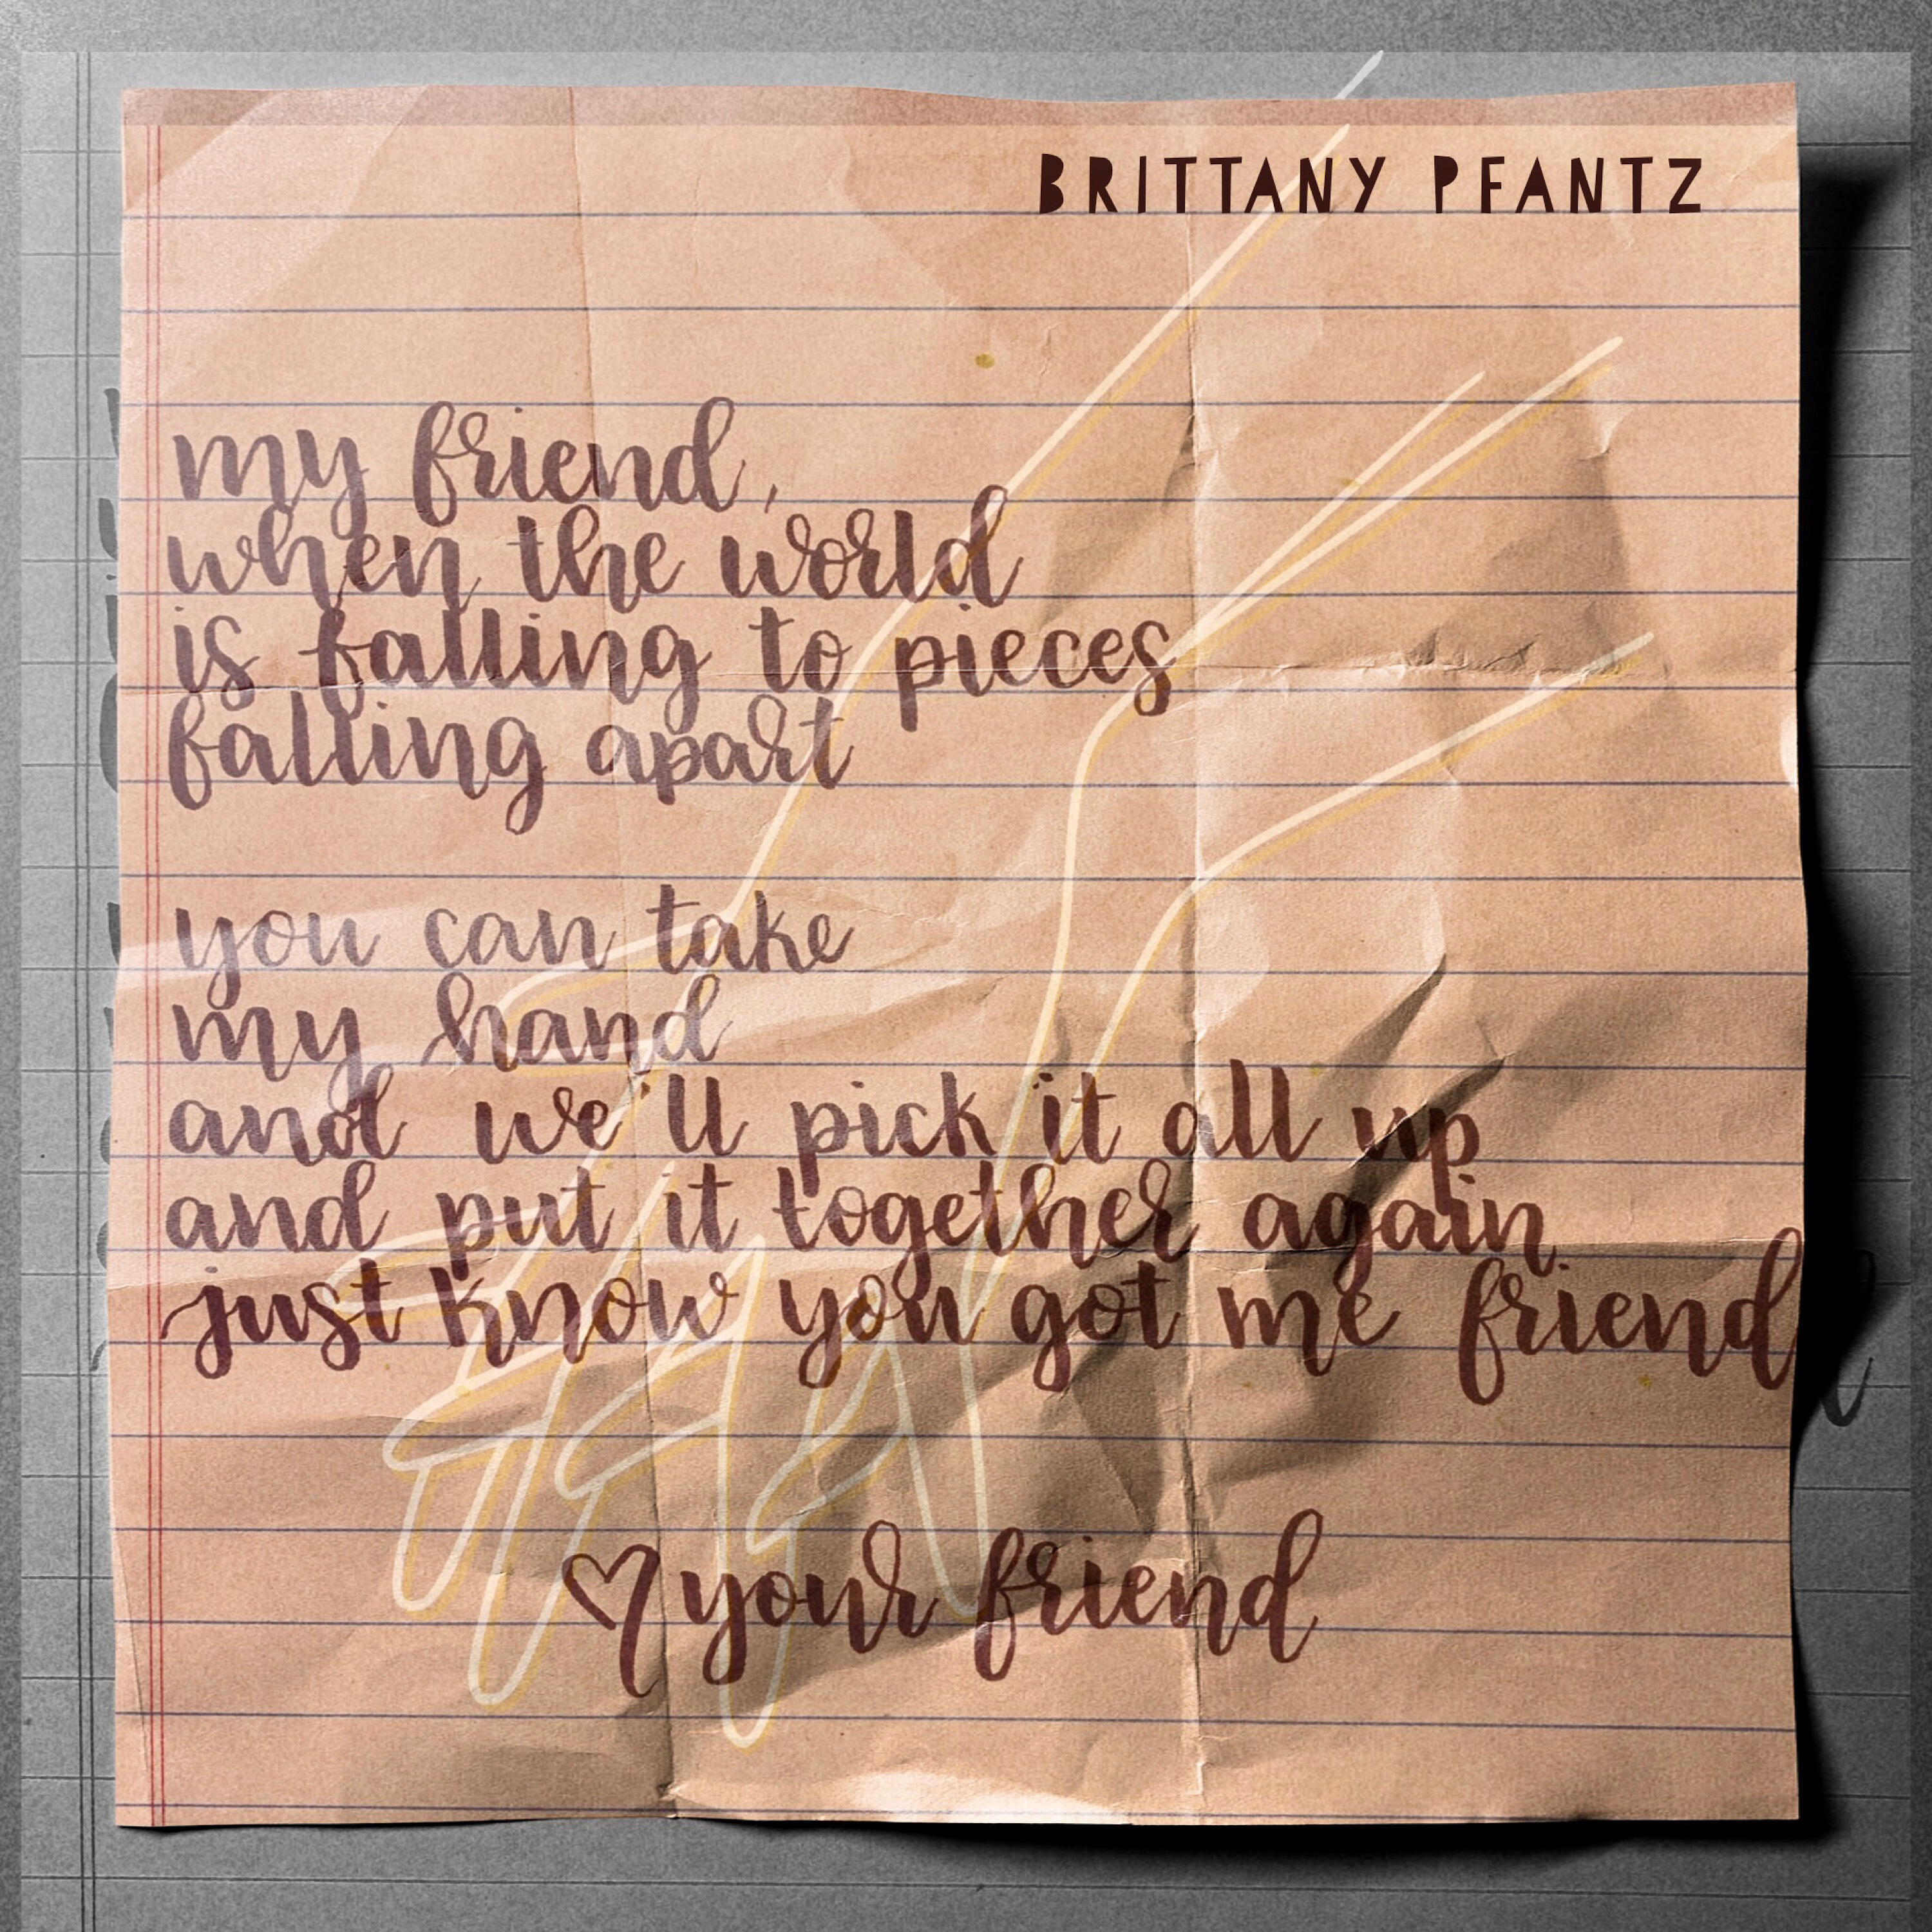 BRITTANY PFANTZ
my friend,
when the world
is falling to pieces
falling apart
you can take
my hand
and we'll pick it all up
and put it together again
just know you got me friend
♡ your friend